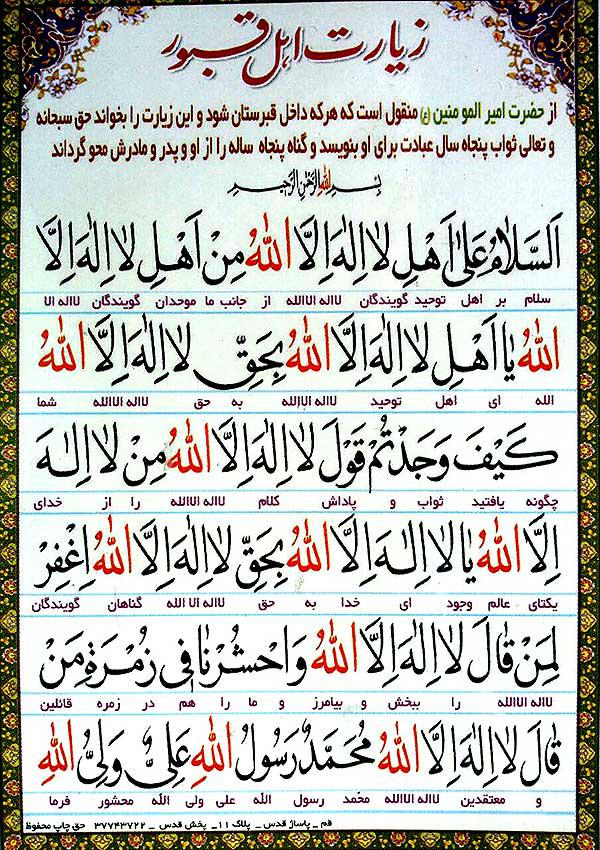 زیارت اهل قبور
از حضرت امیر المو منین (ع) منقول است که هرکه داخل قبرستان شود و این زیارت را بخواند حق سبحانه
و تعالی ثواب پنجاه سال عبادت برای او بنویسد و گناه پنجاه ساله را از او و پدر و مادرش محو گرداند
بِسْمِ اللهِ الرَّحْمٰنِ الرَّحِیمِ
اَلسَّلامُ عَلیٰ اَهْلِ لا اِلٰهَ اِلَّا اللهُ مِنْ اَهْلِ لا اِلٰهَ اِلَّا
سلام بر اهل توحید گویندگان لااله الاالله از جانب ما موحدان گویندگان لااله الا
اللهُ یا اَهْلِ لا اِلٰهَ اِلَّا اللهُ بِحَقِّ لا اِلٰهَ اِلَّا اللهُ
الله ای اهل توحید لااله الاالله به حق لااله الاالله شما
کَیْفَ وَجَدْتُمْ قَوْلَ لا اِلٰهَ اِلَّا اللهُ مِنْ لا اِلٰهَ
چگونه یافتید ثواب و پاداش کلام لااله الاالله را از خدای
اِلَّا اللهُ یا لا اِلٰهَ اِلَّا اللهُ بِحَقِّ لا اِلٰهَ اِلَّا اللهُ اِغْفِرْ
یکتای عالم وجود ای خدا به حق لااله الا الله گناهان گویندگان
لِمَنْ قالَ لا اِلٰهَ اِلَّا اللهُ وَاحْشُرْنا فی زُمْرَةِ مَنْ
لااله الاالله را ببخش و بیامرز و ما را هم در زمره قائلین
قالَ لا اِلٰهَ اِلَّا اللهُ مُحَمَّدٌ رَسُولُ اللهِ عَلِیٌّ وَلِیُّ اللهِ
و معتقدین لااله الاالله محمّد رسول الله علی ولی الله محشور فرما
قم _ پاساژ قدس _ پلاک ۱۱ _ پخش قدس _ ۳۷۷۴۳۷۲۲ حق چاپ محفوظ